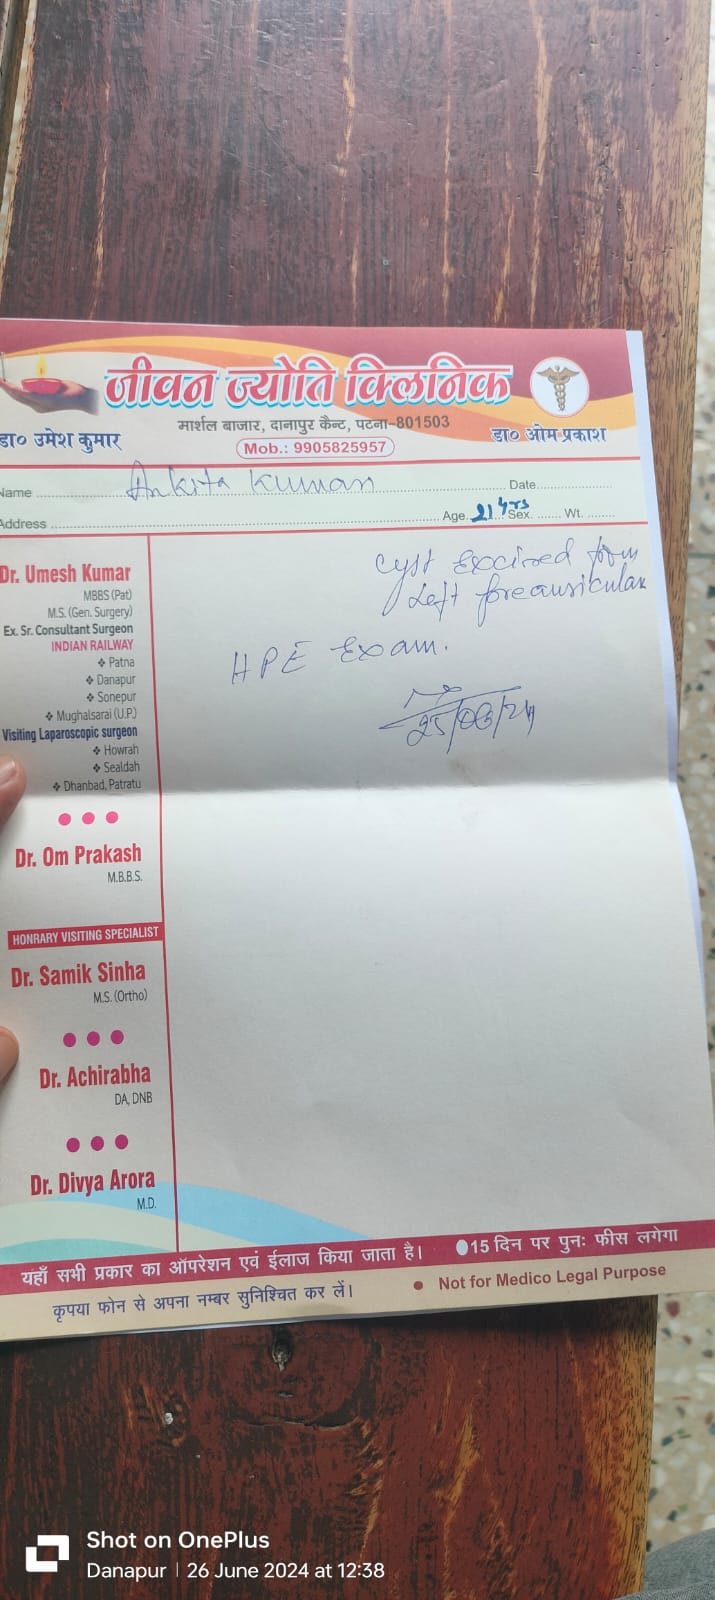 जीवन ज्योति क्लिनिक
मार्शल बाजार, दानापुर कैन्ट, पटना-801503
डा० उमेश कुमार
डा० ओम प्रकाश
Mob.: 9905825957
Name Ankita Kumari Date
Address Age 21 yrs Sex Wt.
Cyst Excised from
Left preauricular
HPE Exam.
25/06/24
Dr. Umesh Kumar
MBBS (Pat)
M.S. (Gen. Surgery)
Ex. Sr. Consultant Surgeon
INDIAN RAILWAY
❖ Patna
❖ Danapur
❖ Sonepur
❖ Mughalsarai (U.P.)
Visiting Laparoscopic surgeon
❖ Howrah
❖ Sealdah
❖ Dhanbad, Patratu
Dr. Om Prakash
M.B.B.S.
HONRARY VISITING SPECIALIST
Dr. Samik Sinha
M.S. (Ortho)
Dr. Achirabha
DA, DNB
Dr. Divya Arora
M.D.
यहाँ सभी प्रकार का ऑपरेशन एवं ईलाज किया जाता है। ●15 दिन पर पुनः फीस लगेगा
कृपया फोन से अपना नम्बर सुनिश्चित कर लें। ● Not for Medico Legal Purpose
Shot on OnePlus
Danapur | 26 June 2024 at 12:38